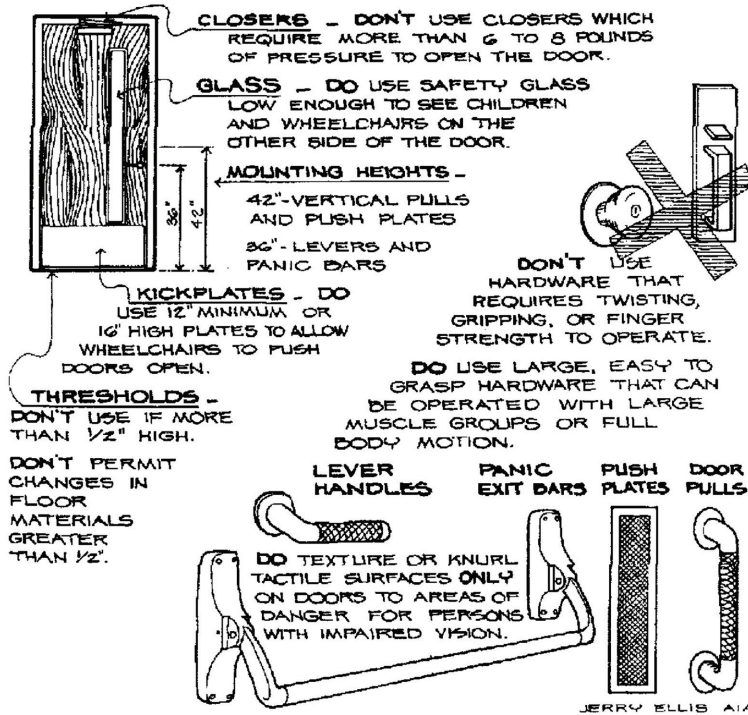 CLOSERS - DON'T USE CLOSERS WHICH
REQUIRE MORE THAN 6 TO 8 POUNDS
OF PRESSURE TO OPEN THE DOOR.
GLASS - DO USE SAFETY GLASS
LOW ENOUGH TO SEE CHILDREN
AND WHEELCHAIRS ON THE
OTHER SIDE OF THE DOOR.
MOUNTING HEIGHTS -
42"-VERTICAL PULLS
AND PUSH PLATES
36"- LEVERS AND
PANIC BARS
36"
42"
KICKPLATES - DO
USE 12" MINIMUM OR
16" HIGH PLATES TO ALLOW
WHEELCHAIRS TO PUSH
DOORS OPEN.
THRESHOLDS -
DON'T USE IF MORE
THAN 1/2" HIGH.
DON'T PERMIT
CHANGES IN
FLOOR
MATERIALS
GREATER
THAN 1/2".
DON'T USE
HARDWARE THAT
REQUIRES TWISTING,
GRIPPING, OR FINGER
STRENGTH TO OPERATE.
DO USE LARGE, EASY TO
GRASP HARDWARE THAT CAN
BE OPERATED WITH LARGE
MUSCLE GROUPS OR FULL
BODY MOTION.
LEVER
HANDLES
PANIC
EXIT BARS
PUSH
PLATES
DOOR
PULLS
DO TEXTURE OR KNURL
TACTILE SURFACES ONLY
ON DOORS TO AREAS OF
DANGER FOR PERSONS
WITH IMPAIRED VISION.
JERRY ELLIS AIA